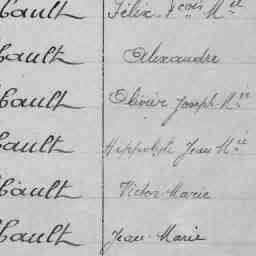 bault Félix Fçois M.ie
bault Alexandre
bault Olivier Joseph M.ie
bault Hippolyte Jean M.ie
bault Victor Marie
bault Jean Marie